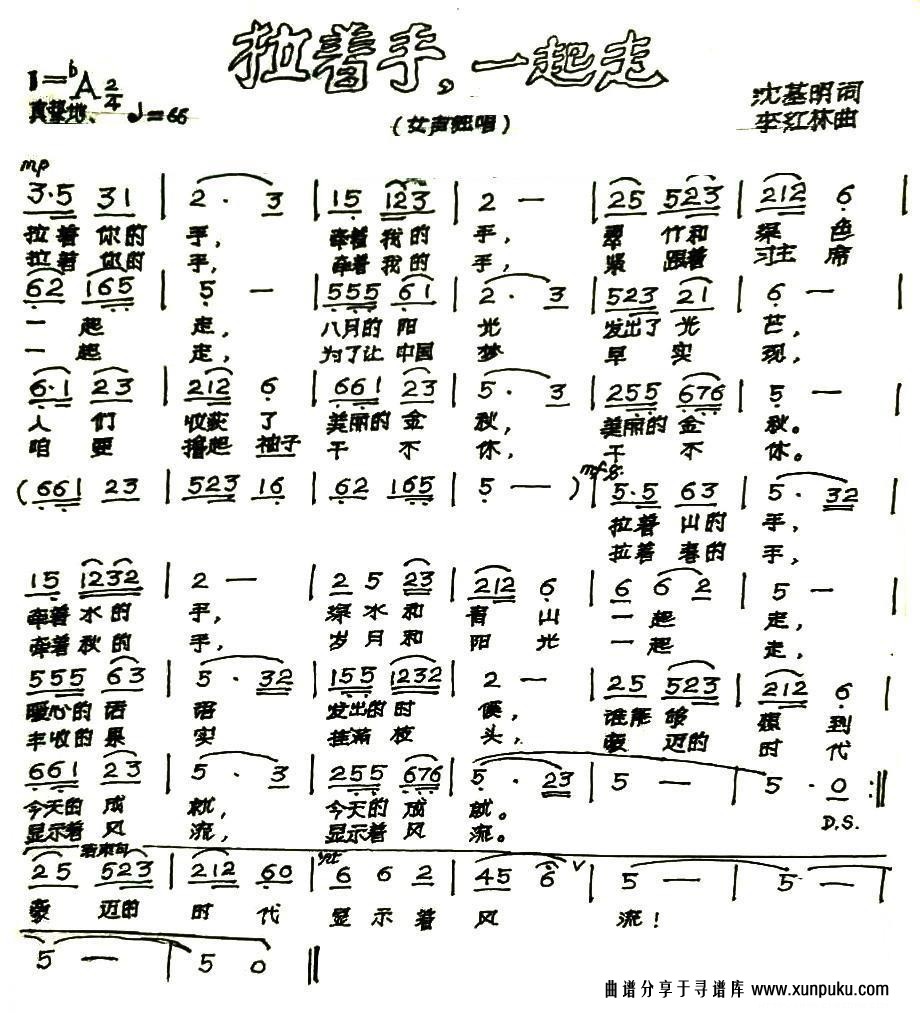 拉着手，一起走
1=♭A 2/4
真挚地、♩=66
(女声独唱)
沈基明词
李红林曲
mp
3·5 31 | 2· 3 | 15 123 | 2 — | 25 523 | 212 6 |
拉着你的 手， 牵着我的 手， 翠竹和 绿色
拉着你的 手， 牵着我的 手， 紧跟着 习主席
62 165 | 5 — | 555 61 | 2· 3 | 523 21 | 6 — |
一起 走， 八月的阳 光 发出了光 芒，
一起 走， 为了让中国 梦 早实 现，
6·1 23 | 212 6 | 661 23 | 5· 3 | 255 676 | 5 — |
人们 收获了 美丽的金 秋， 美丽的金 秋。
咱更 撸起袖子 干不 休， 干不 休。
(661 23 | 523 16 | 62 165 | 5 — ) | mf 5·5 63 | 5· 32 |
拉着山的 手，
拉着春的 手，
15 1232 | 2 — | 2 5 23 | 212 6 | 6 6 2 | 5 — |
牵着水的 手， 绿水和 青山 一起 走，
牵着秋的 手， 岁月和 阳光 一起 走，
555 63 | 5· 32 | 155 1232 | 2 — | 25 523 | 212 6 |
暖心的话 语 发出的时 候， 谁能够 想到
丰收的果 实 挂满枝 头， 豪迈的 时代
661 23 | 5· 3 | 255 676 | 5· 23 | 5 — | 5· 0 :‖
今天的成 就， 今天的成 就。
显示着风 流， 显示着风 流。
D.S.
结束句
25 523 | 212 60 | 6 6 2 | 45 6 ∨ | 5 — | 5 — |
豪迈的 时代 显示着 风 流！
5 — | 5 0 ‖
曲谱分享于寻谱库 www.xunpuku.com